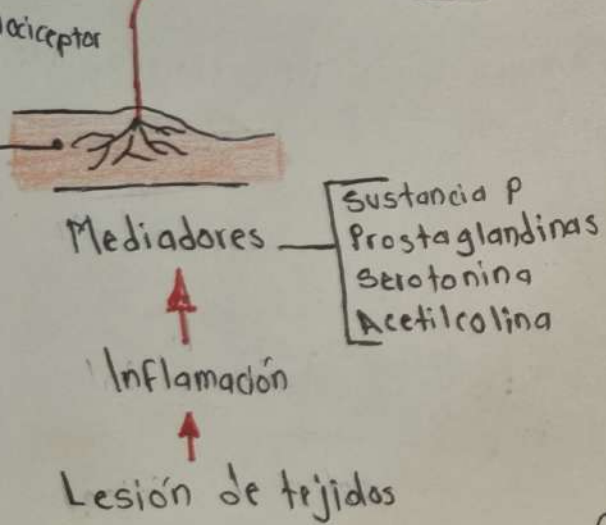 Nociceptor
Mediadores
Sustancia P
Prostaglandinas
Serotonina
Acetilcolina
Inflamación
Lesión de tejidos